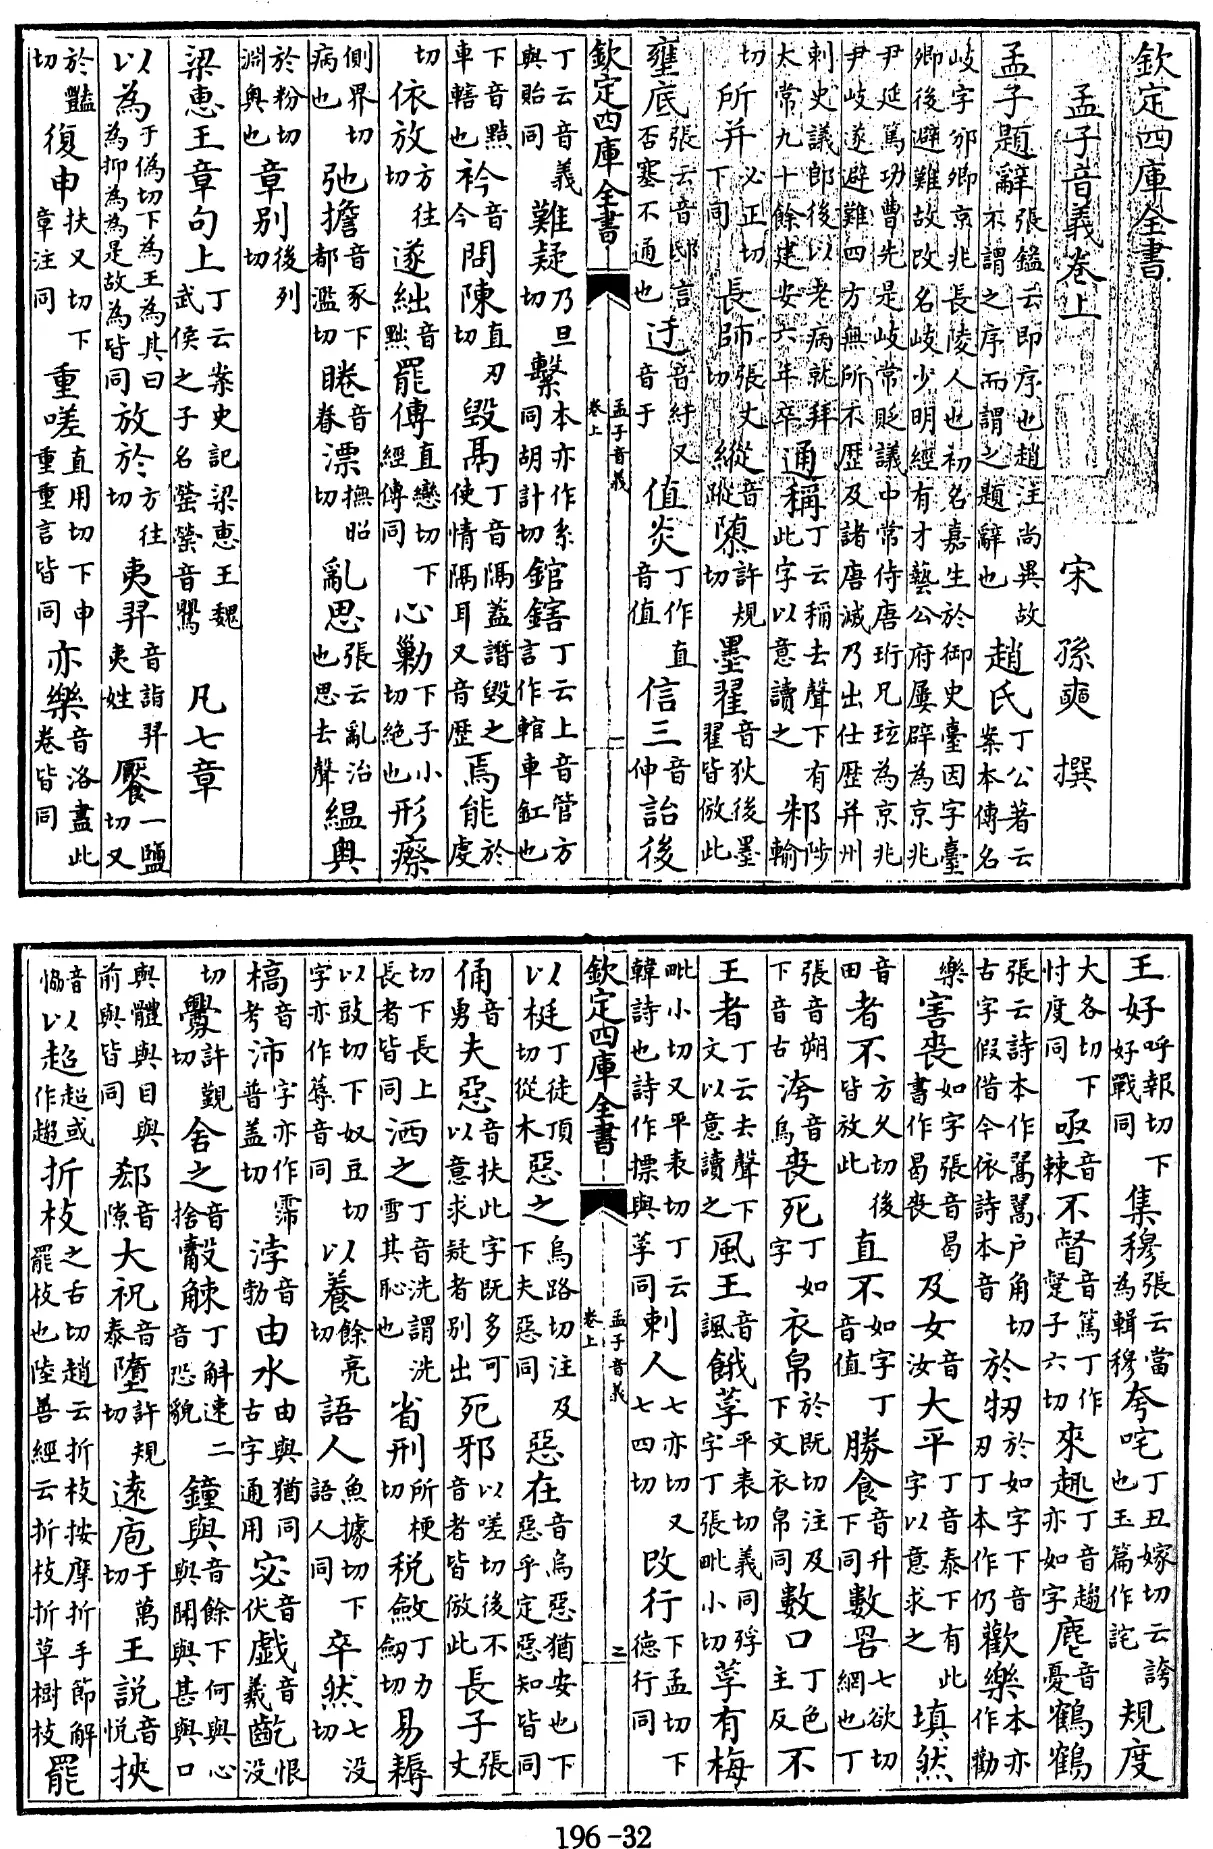 欽定四庫全書
孟子音義卷上 宋 孫奭 撰
孟子題辭張鎰云即序也趙注尚異故不謂之序而謂之題辭也趙氏丁公著云案本傳名
岐字邠卿京兆長陵人也初名嘉生於御史臺因字臺卿後避難故改名岐少明經有才藝公府屢辟為京兆
尹延篤功曹先是岐常貶議中常侍唐珩兄玹為京兆尹岐遂避難四方無所不歷及諸唐滅乃出仕歷并州
刺史議郎後以老病就拜太常九十餘建安六年卒通稱丁云稱去聲下有此字以意讀之邾陟輸
切所并必正切下同長師張丈切縱音蹤隳許規切墨翟音狄後墨翟皆倣此
壅底張云音邸言否塞不通也迂音紆又音于值炎丁作直音值信三音伸詒後
欽定四庫全書 孟子音義 卷上 一
丁云音義與貽同難疑乃旦切繫本亦作系同胡計切錧鎋丁云上音管方言作輨車釭也
下音黠車轄也衿音今間陳直刃切毁鬲丁音隔蓋譖毁之使情隔耳又音歷焉能於虔
切依放方往切遂絀音黜罷傳直戀切下經傳同心勦下子小切絶也形瘵
側界切病也弛擔音豕下都濫切睠音眷漂撫昭切亂思張云亂治也思去聲緼奥
於粉切淵奥也章別後列切
梁惠王章句上丁云案史記梁惠王魏武侯之子名罃罃音鸎 凡七章
以為于偽切下為王為其曰為抑為為是故為皆同放於方往切夷羿音詣羿夷姓饜一鹽切又
於豔切復申扶又切下章注同重嗟直用切下申重重言皆同亦樂音洛盡此卷皆同
王好呼報切下好戰同集穆張云當為輯穆夸咤丁丑嫁切云誇也玉篇作詫規度
大各切下忖度同亟音棘不督音篤丁作踅子六切來趣丁音趨亦如字麀音憂鶴鶴
張云詩本作翯翯戶角切古字假借今依詩本音於牣於如字下音刃丁本作仞歡樂本亦作勸
樂害喪如字張音曷書作曷喪及女音汝大平丁音泰下有此字以意求之填然
音田者不方久切後皆放此直不如字丁音值勝食音升下同數罟七欲切網也丁
張音朔下音古洿音烏喪死丁如字衣帛於既切注及下文衣帛同數口丁色主反不
王者丁云去聲下文以意讀之風王音諷餓莩平表切義同殍字丁張毗小切莩有梅
毗小切又平表切丁云韓詩也詩作摽與莩同刺人七亦切又七四切改行下孟切下德行同
欽定四庫全書 孟子音義 卷上 二
以梃丁徒頂切從木惡之烏路切注及下夫惡同惡在音烏惡猶安也下惡乎定惡知皆同
俑音勇夫惡音扶此字既多可以意求疑者別出死邪以嗟切後不音者皆倣此長子張丈
切下長上長者皆同洒之丁音洗謂洗雪其恥也省刑所梗切税斂丁力劒切易耨
以豉切下奴豆切字亦作薅音同以養餘亮切語人魚據切下語人同卒然七沒切
槁音考沛字亦作霈普蓋切浡音勃由水由與猶同古字通用宓音伏戲音羲齕恨沒
切釁許覲切舍之音捨觳觫丁斛速二音恐貌鐘與音餘下何與心與閒與甚與口
與體與目與前與皆同郄音隙大祝音泰墮許規切遠庖于萬切王說音悅挾
音協以超超或作趙折枝之舌切趙云折枝按摩折手節解罷枝也陸善經云折枝折草樹枝罷
196-32